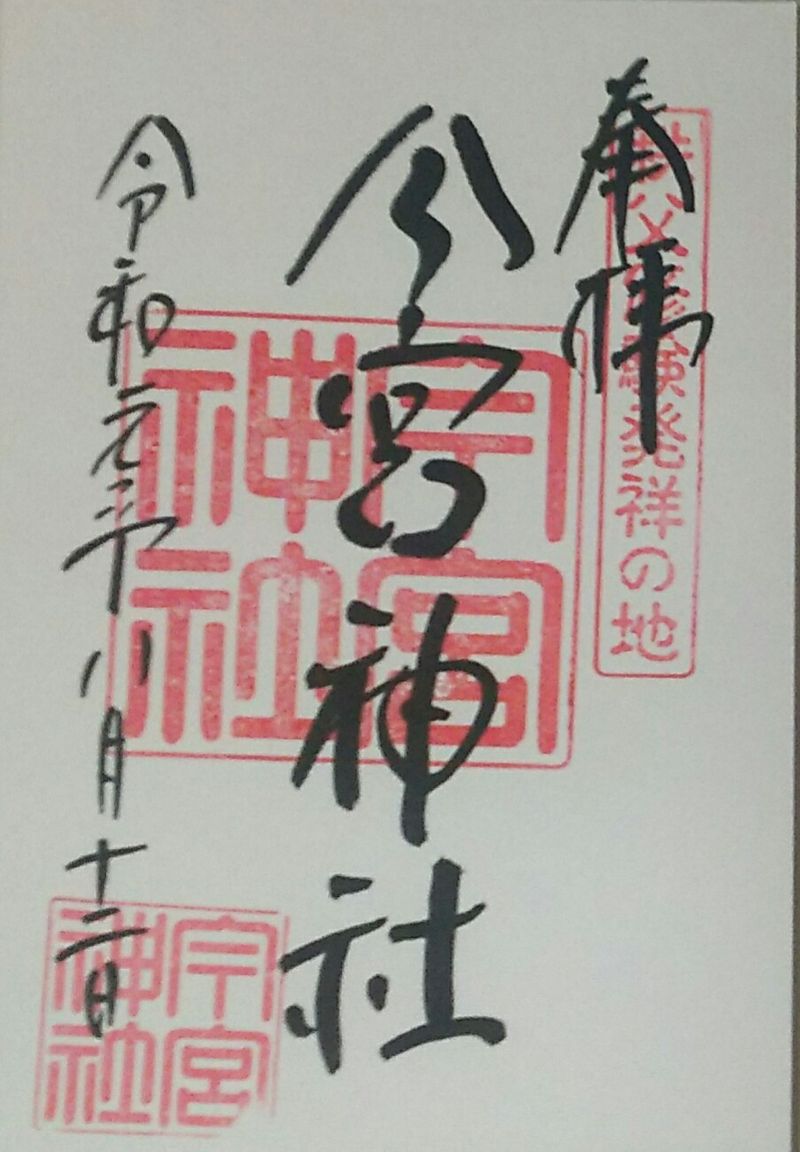 奉拝
秩父修験発祥の地
今宮神社
今宮神社
令和元年八月十二日
今宮神社